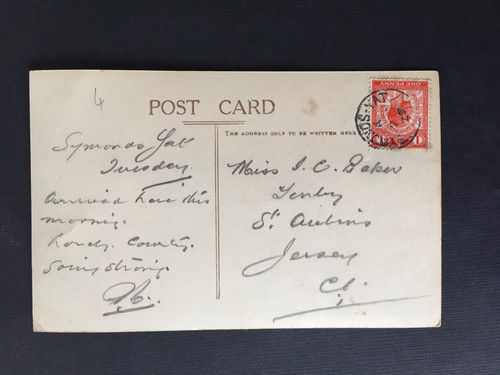 4
POST CARD
THE ADDRESS ONLY TO BE WRITTEN HERE
ONE PENNY
Symonds Yat
Tuesday.
Arrived here this
morning.
Lovely County.
Going strong.
Miss I. C. Baker
Tenby
St Aubins
Jersey
C.I.